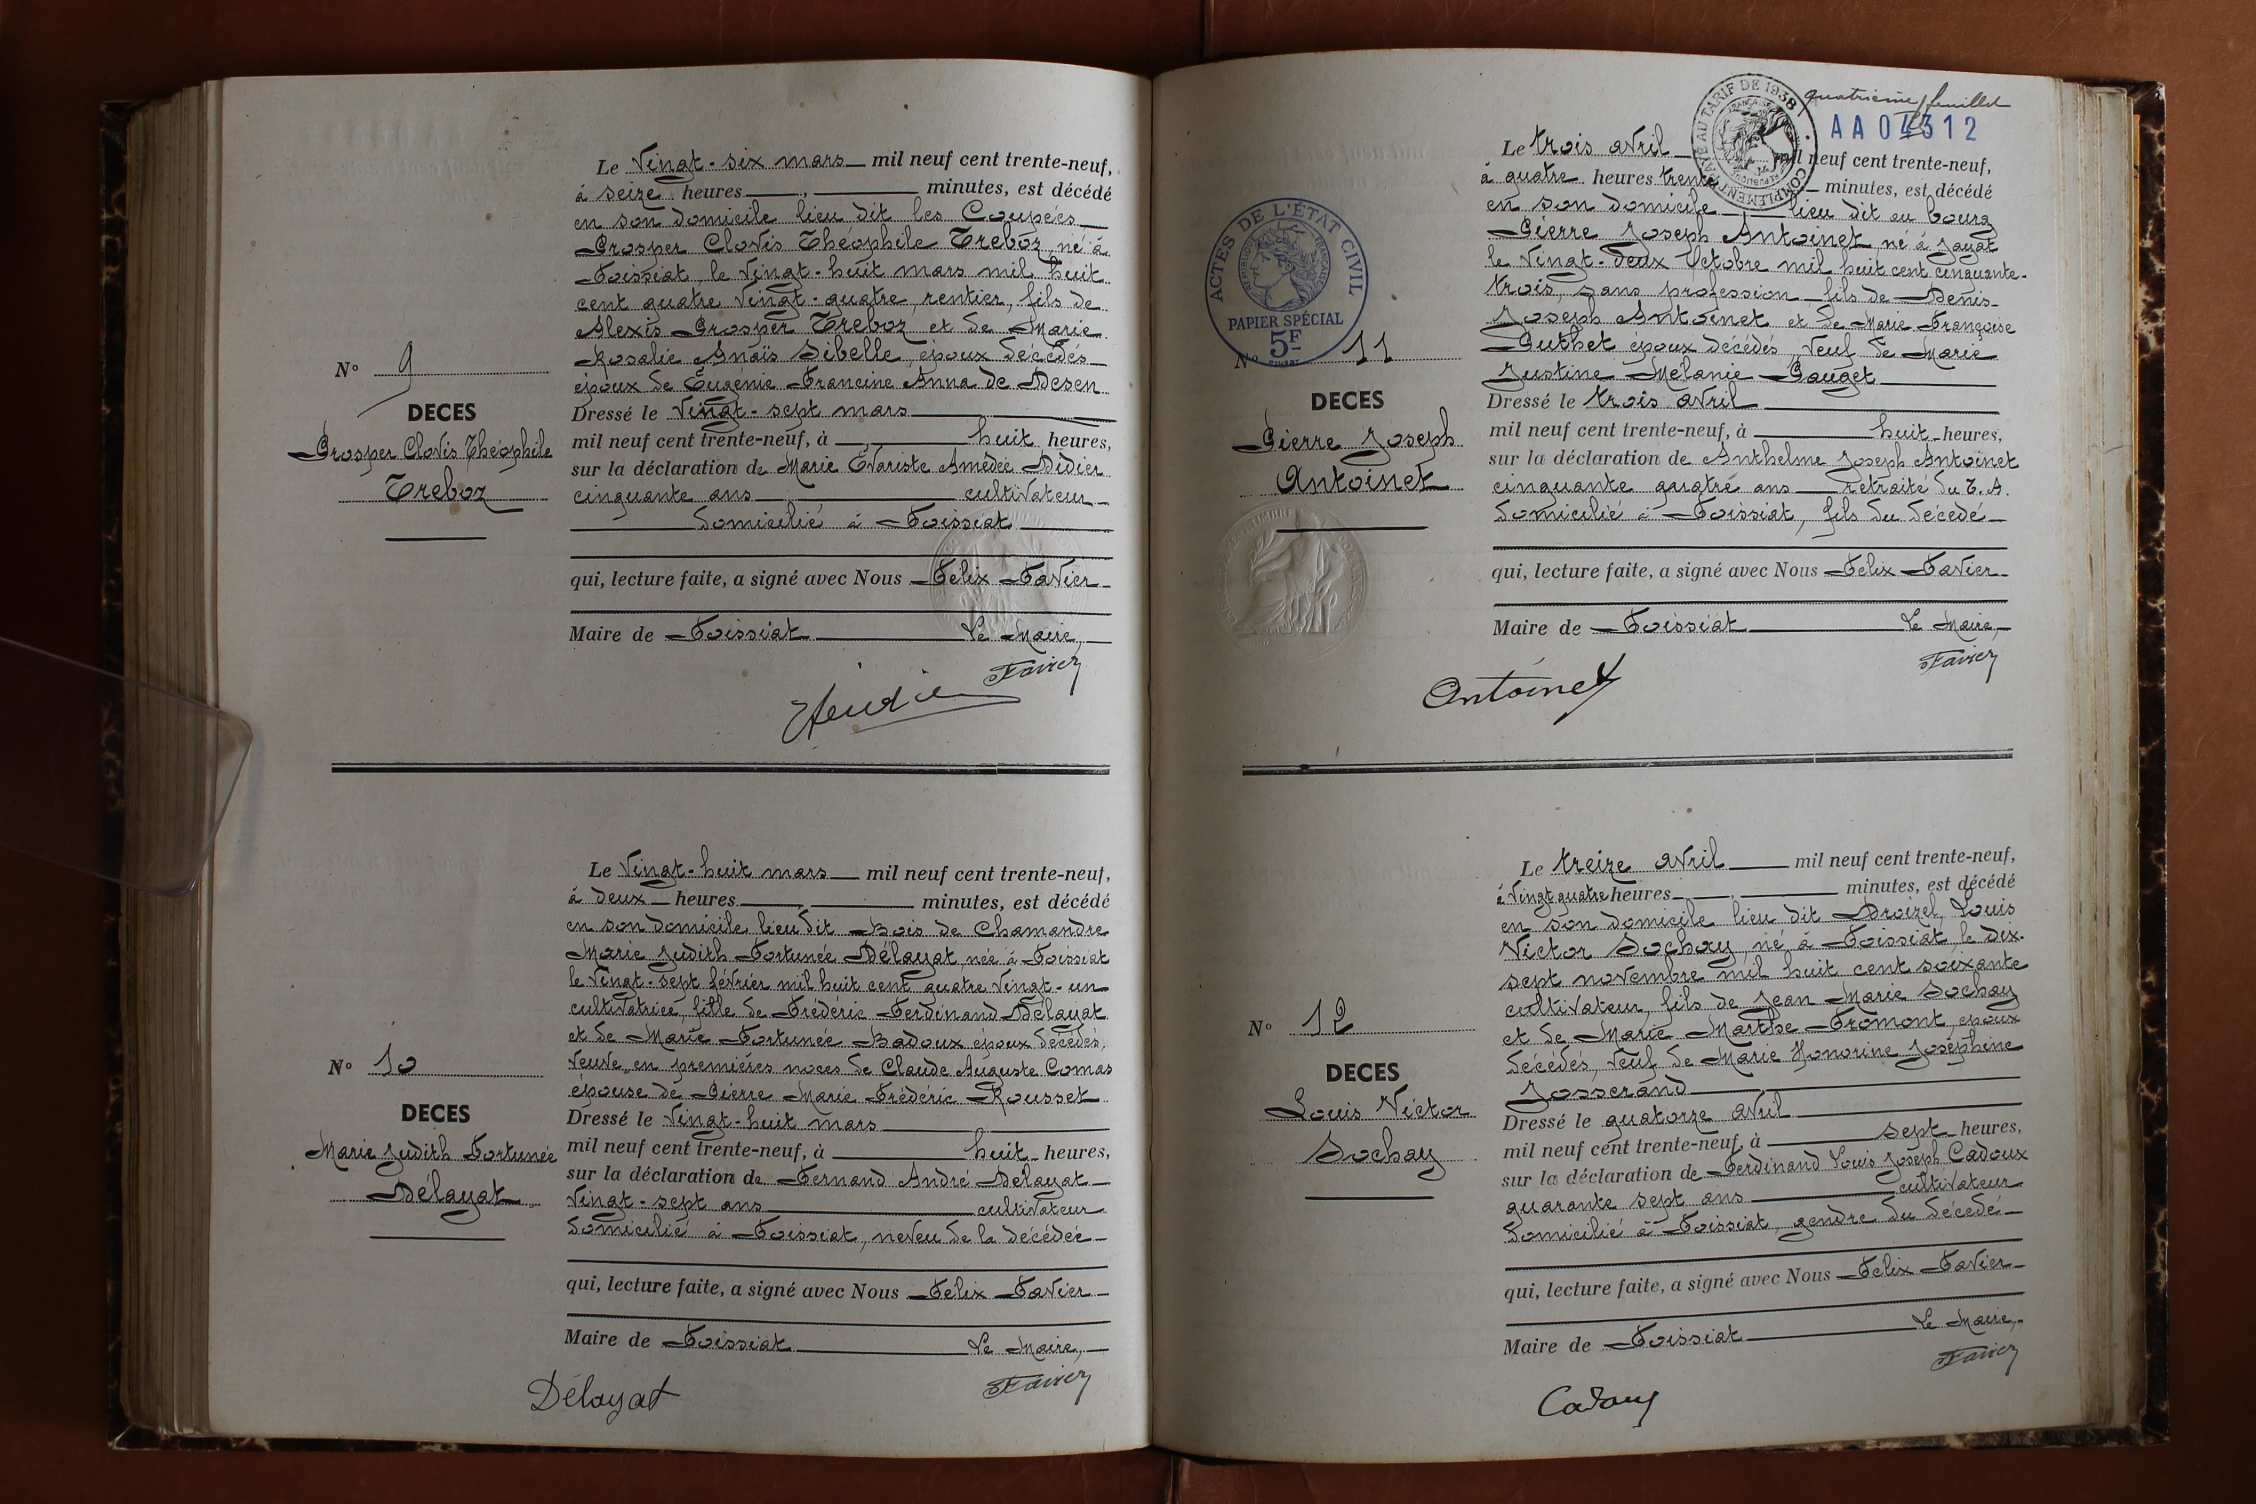 Le Vingt-six mars mil neuf cent trente-neuf,
à seize heures , minutes, est décédé
en son domicile lieu dit les Coupées
Prosper Clovis Théophile Treboz, né à
Foissiat, le vingt-huit mars mil huit
cent quatre vingt-quatre, rentier, fils de
Alexis Prosper Treboz et de Marie
Rosalie Anaïs Sibelle, époux décédés
époux de Eugénie Francine Anna de Desen
N° 9
DECES
Prosper Clovis Théophile
Treboz
Dressé le vingt-sept mars
mil neuf cent trente-neuf, à huit heures,
sur la déclaration de Marie Evariste Amédée Didier
cinquante ans cultivateur
domicilié à Foissiat
qui, lecture faite, a signé avec Nous Félix Favier
Maire de Foissiat Le Maire,
Favier
Le Vingt-huit mars mil neuf cent trente-neuf,
à deux heures , minutes, est décédé
en son domicile lieu dit Bois de Chamandre
Marie Judith Fortunée Délayat, née à Foissiat
le vingt-sept février mil huit cent quatre vingt-un
cultivatrice, fille de Frédéric Ferdinand Délayat
et de Marie Fortunée Badoux époux décédés,
veuve en premières noces de Claude Auguste Comas
épouse de Pierre Marie Frédéric Rousset
N° 10
DECES
Marie Judith Fortunée
Délayat
Dressé le vingt-huit mars
mil neuf cent trente-neuf, à huit heures,
sur la déclaration de Fernand André Delayat
vingt-sept ans cultivateur
domicilié à Foissiat, neveu de la décédée
qui, lecture faite, a signé avec Nous Félix Favier
Maire de Foissiat Le Maire,
Délayat Favier
quatrième feuillet
AA04312
COMPLEMENT PAYE AU TARIF DE 1938
Le trois avril mil neuf cent trente-neuf,
à quatre heures trente minutes, est décédé
en son domicile lieu dit au bourg
Pierre Joseph Antoinet, né à Jayat
le vingt-deux Octobre mil huit cent cinquante-
trois, sans profession fils de Denis
Joseph Antoinet et de Marie Françoise
Puthet époux décédés, veuf de Marie
Justine Mélanie Pauget
ACTES DE L'ÉTAT CIVIL
PAPIER SPÉCIAL
5F
N° 11
DECES
Pierre Joseph
Antoinet
Dressé le trois avril
mil neuf cent trente-neuf, à huit heures,
sur la déclaration de Anthelme Joseph Antoinet
cinquante quatre ans retraité du T.A.
domicilié à Foissiat, fils du décédé
qui, lecture faite, a signé avec Nous Félix Favier
Maire de Foissiat Le Maire,
Antoinet Favier
Le treize avril mil neuf cent trente-neuf,
à vingt quatre heures , minutes, est décédé
en son domicile lieu dit Droizel, Louis
Victor Sochay, né à Foissiat, le dix-
sept novembre mil huit cent soixante
cultivateur, fils de Jean Marie Sochay
et de Marie Marthe Fromont, époux
décédés, veuf de Marie Honorine Joséphine
Josserand
N° 12
DECES
Louis Victor
Sochay
Dressé le quatorze avril
mil neuf cent trente-neuf, à sept heures,
sur la déclaration de Ferdinand Louis Joseph Cadoux
quarante sept ans cultivateur
domicilié à Foissiat, gendre du décédé
qui, lecture faite, a signé avec Nous Félix Favier
Maire de Foissiat Le Maire,
Cadoux Favier